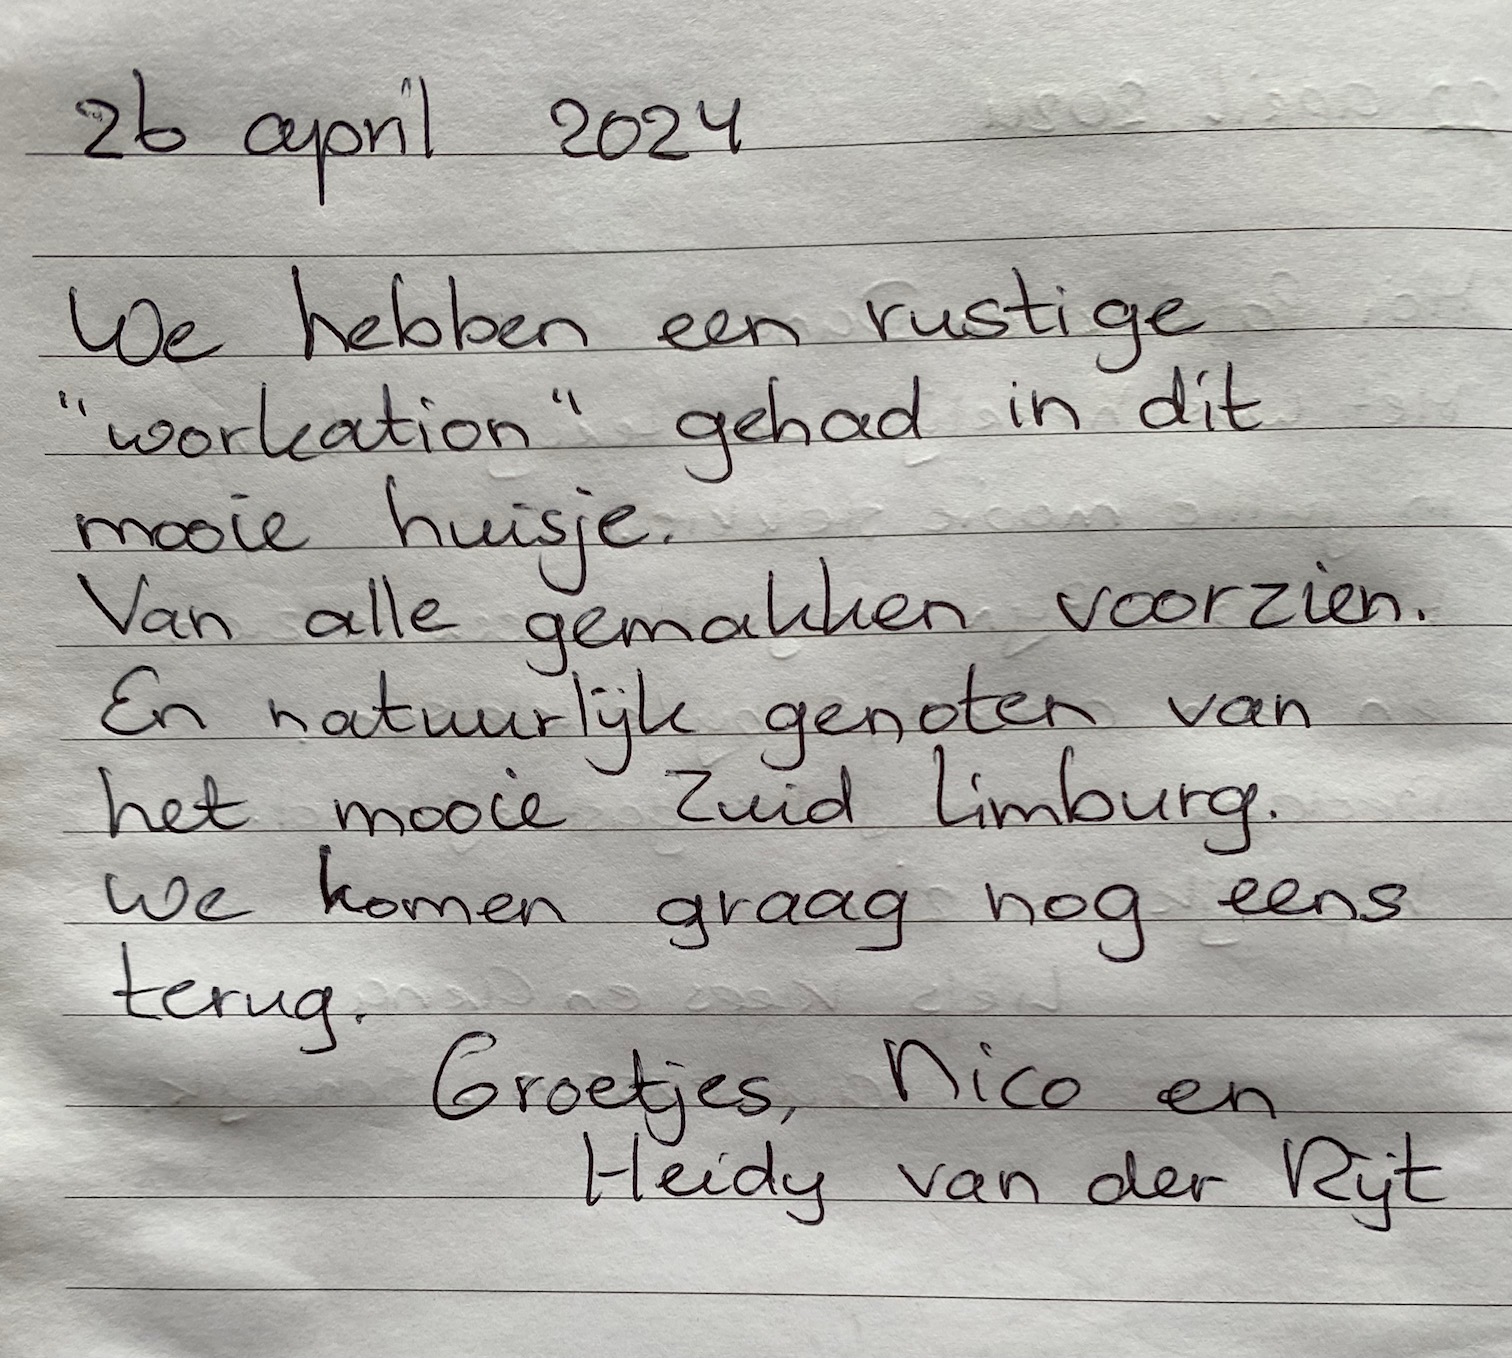 26 april 2024
We hebben een rustige
"workation" gehad in dit
mooie huisje.
Van alle gemakken voorzien.
En natuurlijk genoten van
het mooie Zuid Limburg.
We komen graag nog eens
terug.
Groetjes, Nico en
Heidy van der Rijt